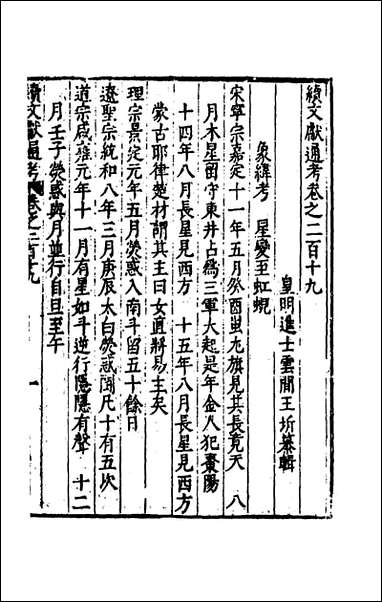 續文獻通考卷之二百十九
皇明進士雲間王圻纂輯
象緯考　星變至虹蜺
宋寧宗嘉定十一年五月癸酉蚩尤旗見其長竟天　八
月木星留守東井占為三軍大起是年金人犯棗陽
十四年八月長星見西方　十五年八月長星見西方
蒙古耶律楚材謂其主曰女直將易主矣
理宗景定元年五月熒惑入南斗留五十餘日
遼聖宗統和八年三月庚辰太白熒惑鬭凡十有五次
道宗咸雍元年十一月有星如斗逆行隱隱有聲　十二
月壬子熒惑與月並行自旦至午
續文獻通考　卷之二百十九　一